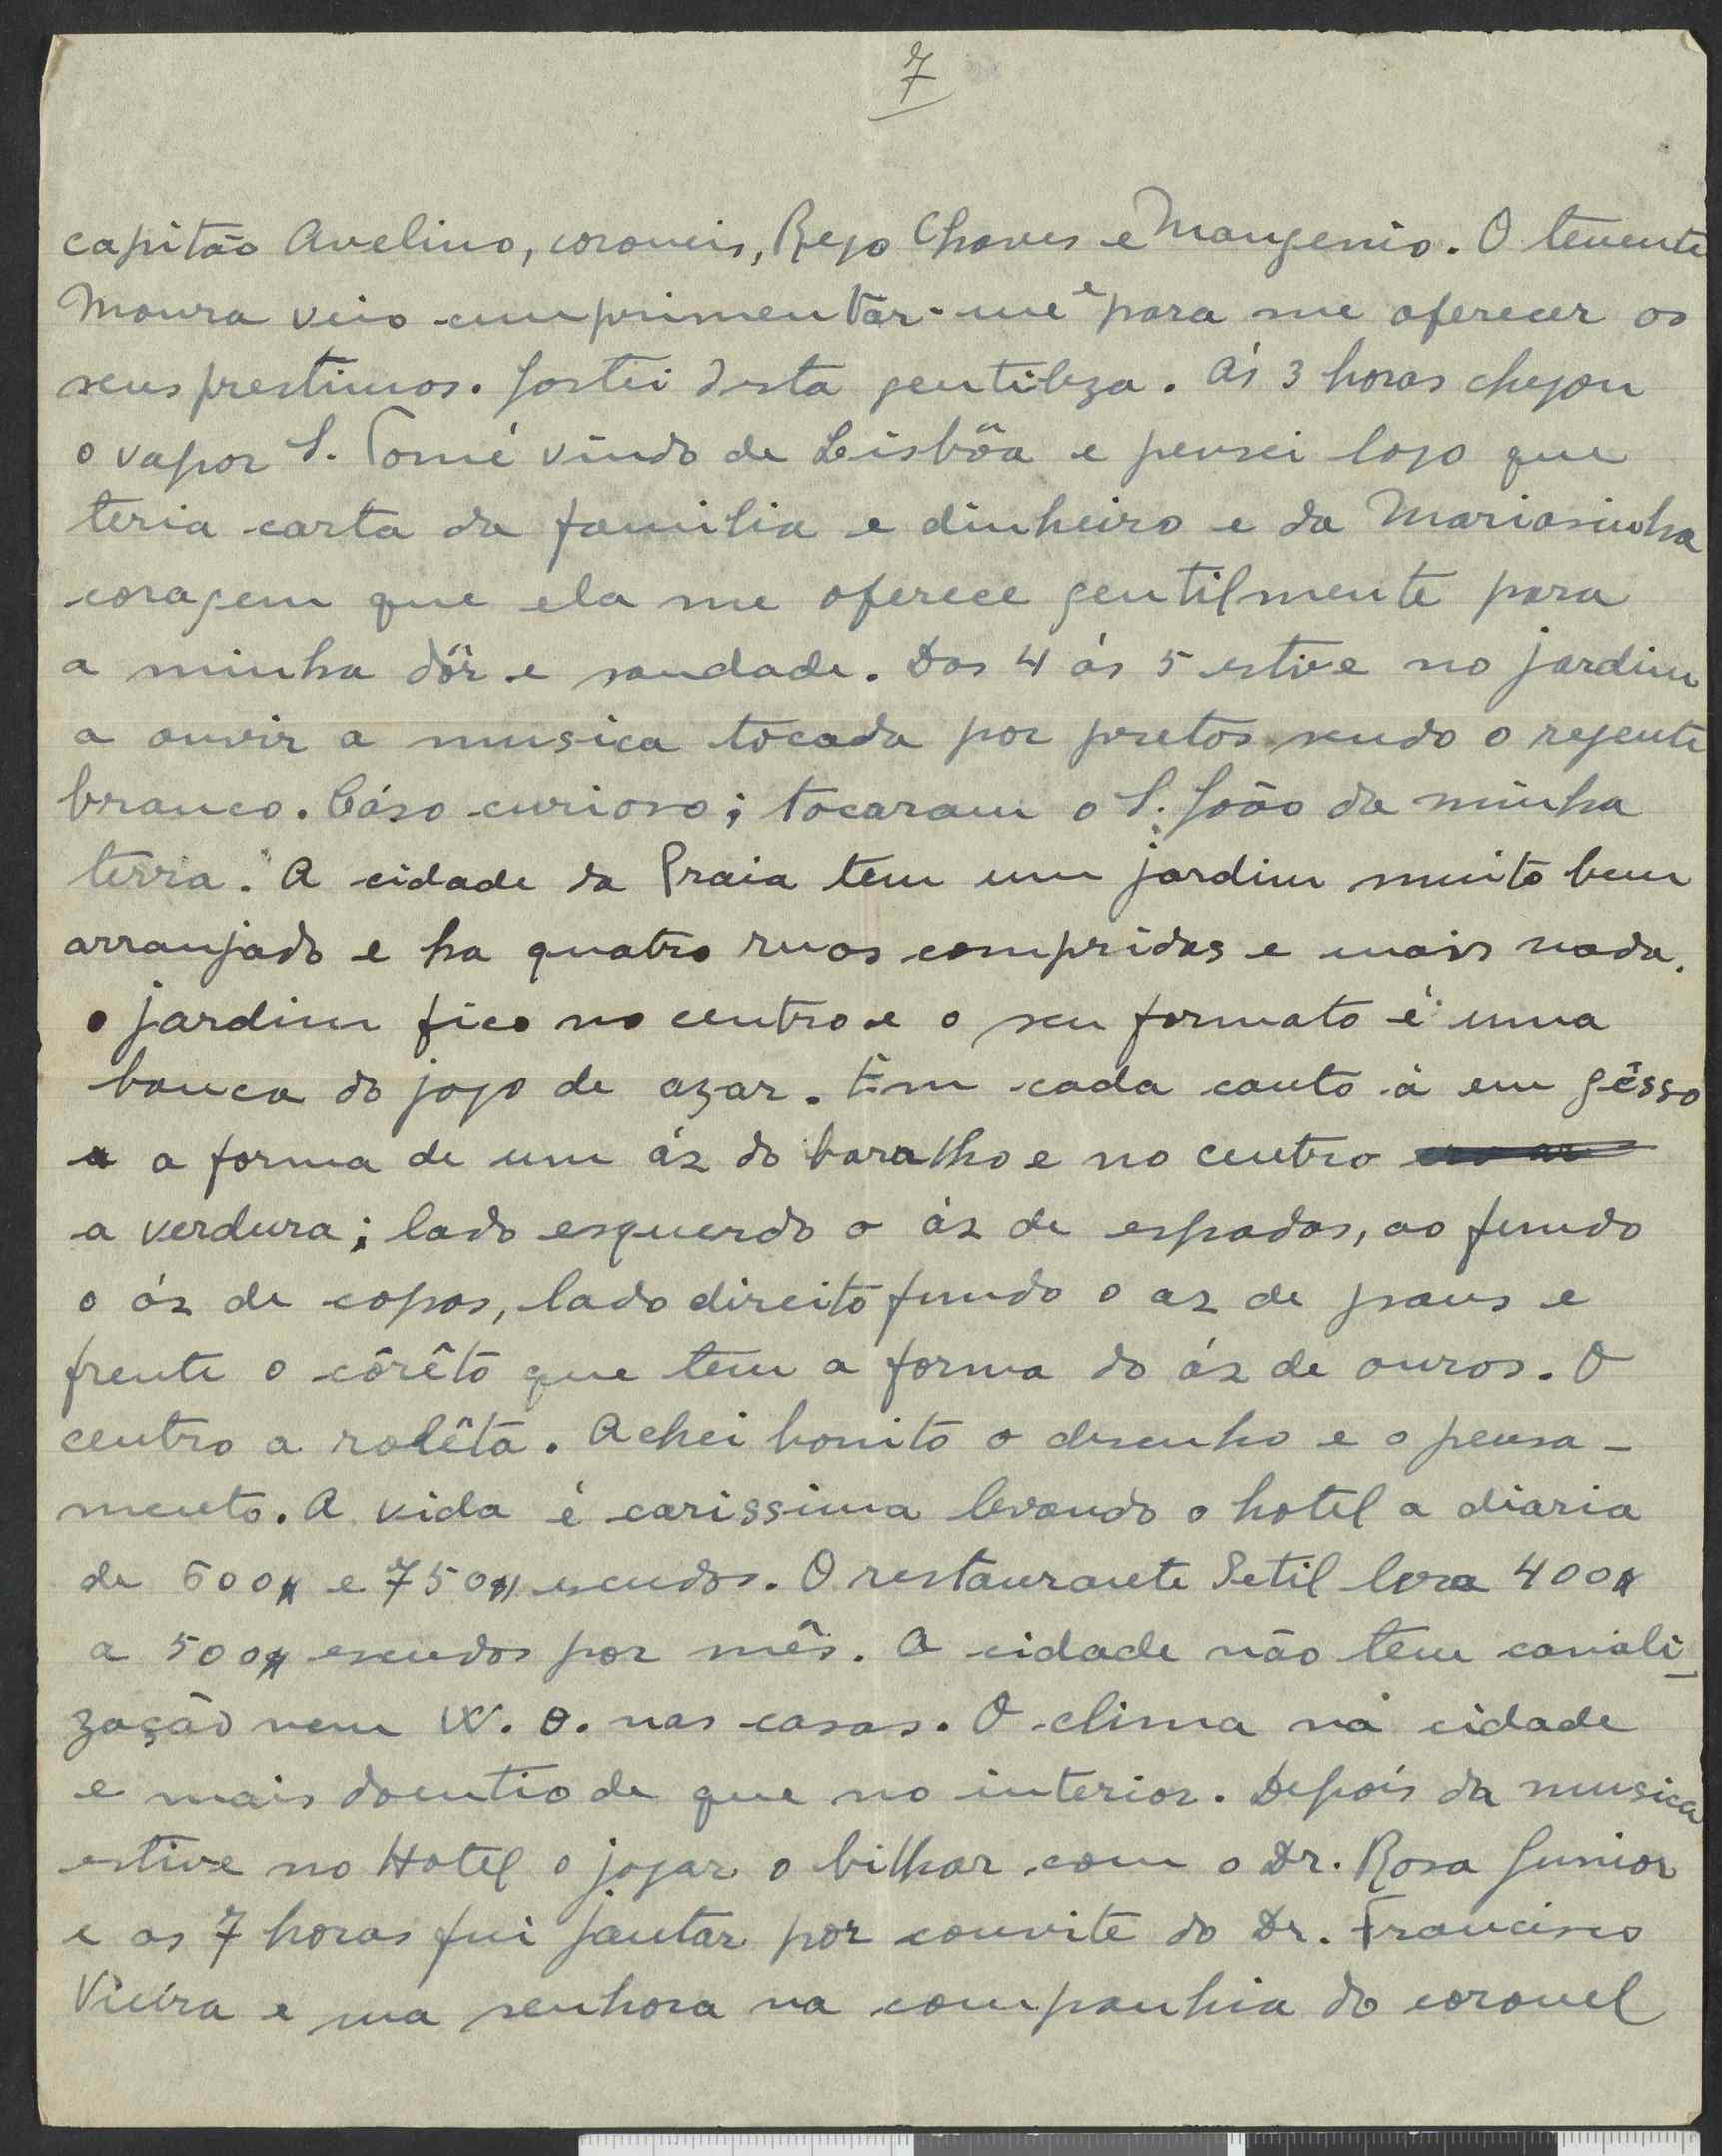 7
capitão Avelino, coroneis, Rego Chaves e Mangenio. O tenente
Moura veio cumprimentar-me e para me oferecer os
seus prestimos. Gostei desta gentileza. Ás 3 horas chegou
o vapor S. Tomé vindo de Lisbôa e pensei logo que
teria carta da familia e dinheiro e da Mariasinha
coragem que ela me oferece gentilmente para
a minha dôr e saudade. Das 4 ás 5 estive no jardim
a ouvir a musica tocada por pretos sendo o regente
branco. Cáso curioso; tocaram o S. João da minha
terra." A cidade da Praia tem um jardim muito bem
arranjado e ha quatro ruas compridas e mais nada.
o jardim fica no centro e o seu formato é uma
banca do jogo de azar. Em cada canto á em gêsso
a a forma de um ás do baralho e no centro
a verdura; lado esquerdo o ás de espadas, ao fundo
o ás de copas, lado direito fundo o as de paus e
frente o côrêto que tem a forma do ás de ouros. O
centro a rolêta. Achei bonito o desenho e o pensa-
mento. A vida é carissima levando o hotel a diaria
de 600$ e 750$ escudos. O restaurante Setil leva 400$
a 500$ escudos por mês. A cidade não tem canali-
zação nem W. C. nas casas. O clima na cidade
e mais doentio de que no interior. Depois da musica
estive no Hotel a jogar o bilhar com o Dr. Rosa Junior
e as 7 horas fui jantar por convite do Dr. Francisco
Vieira e sua senhora na companhia do coronel